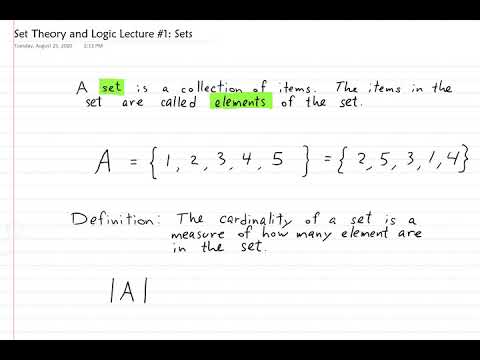 Set Theory and Logic Lecture #1: Sets
Tuesday, August 25, 2020 2:13 PM
A set is a collection of items. The items in the
set are called elements of the set.
A = { 1, 2, 3, 4, 5 } = { 2, 5, 3, 1, 4 }
Definition: The cardinality of a set is a
measure of how many element are
in the set.
|A|